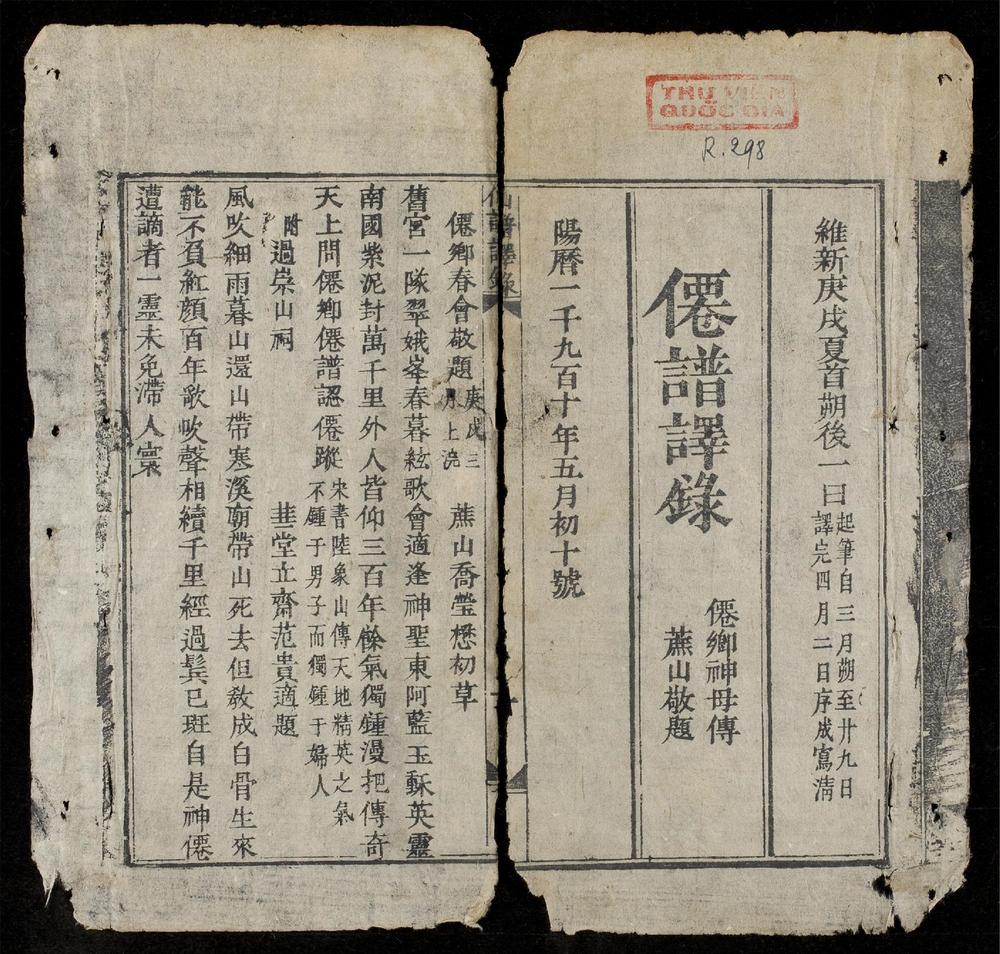 THƯ VIỆN
QUỐC GIA
R.298
維新庚戌夏首朔後一日起筆自三月朔至廿九日
譯完四月二日序成寫清
僊譜譯錄
僊鄉神母傳
蕉山敬題
陽曆一千九百十年五月初十號
仙譜譯錄
僊鄉春會敬題庚戌三
月上浣
蕉山喬瑩懋初草
舊宮一隊翠娥峯春暮絃歌會適逢神聖東阿藍玉穌英靈
南國紫泥封萬千里外人皆仰三百年餘氣獨鍾漫把傳奇
天上問僊鄉僊譜認僊蹤宋書陸象山傳天地精英之氣
不鍾于男子而獨鍾于婦人
附過崇山祠
韭堂立齋范貴適題
風吹細雨暮山還山帶寒溪廟帶山死去但教成白骨生來
能不負紅顏百年歌吹聲相續千里經過鬂已斑自是神僊
遭謫者一靈未免滯人寰